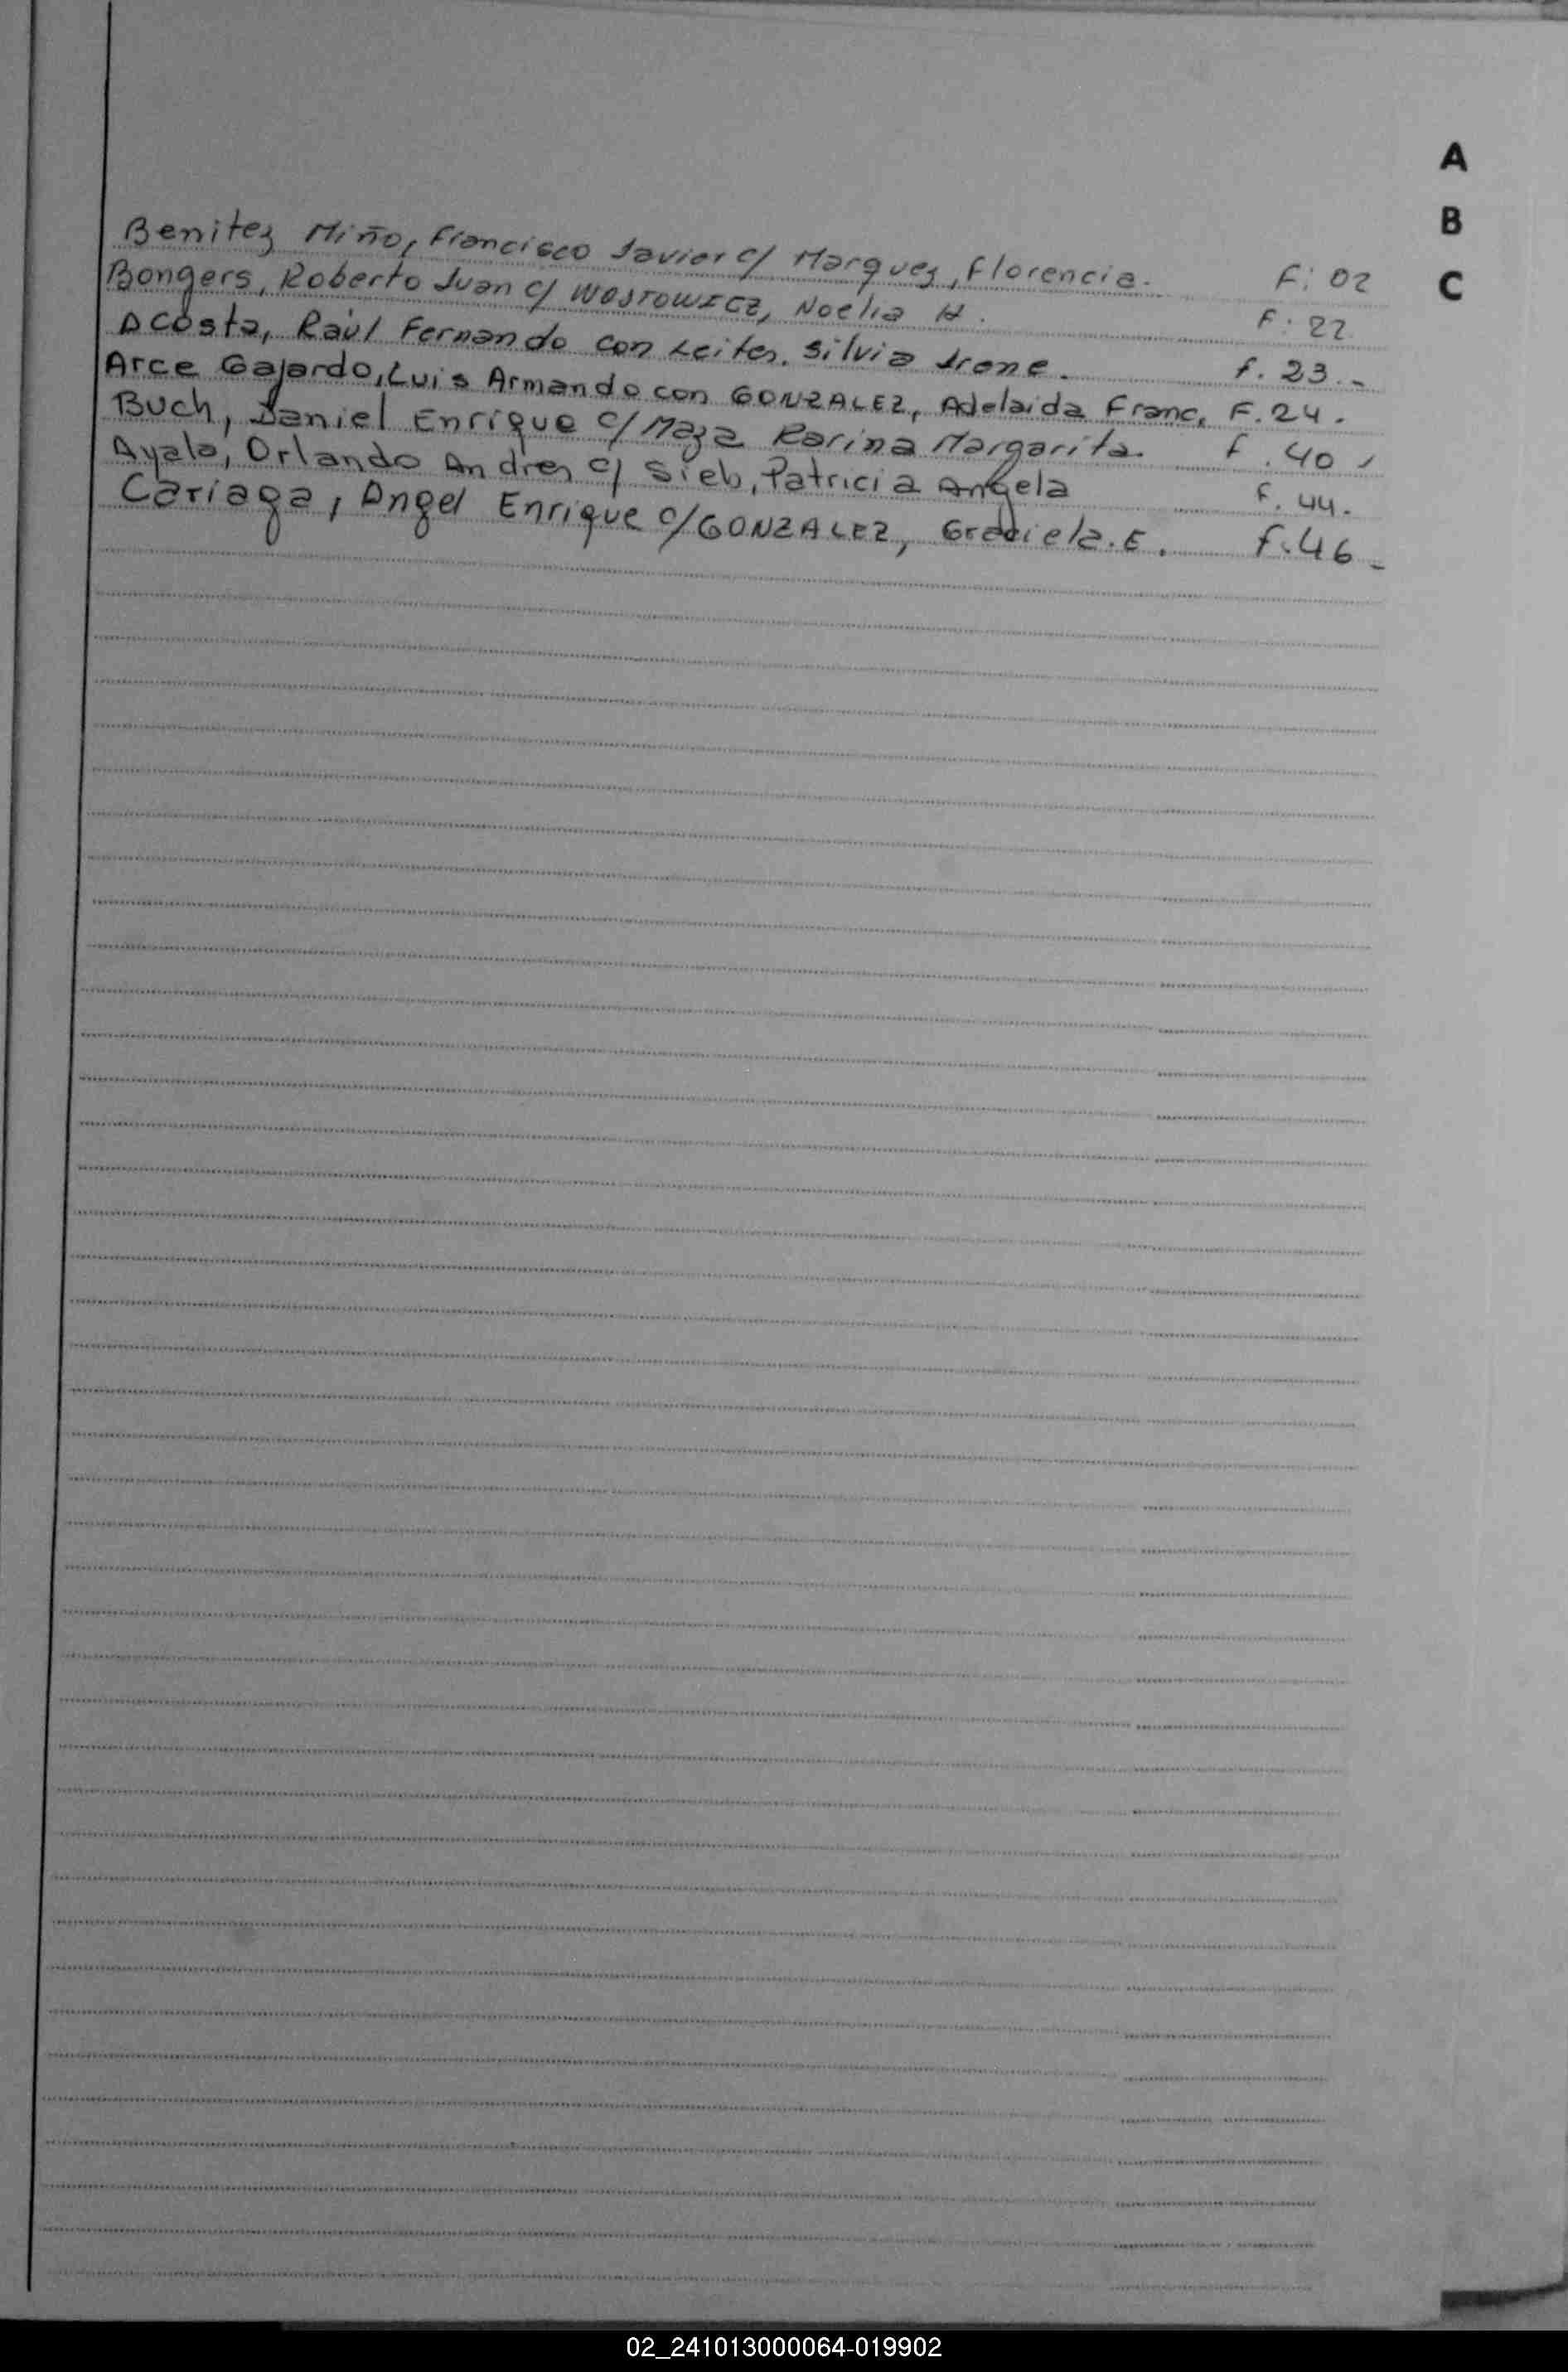 A
B
C
Benitez Miño, Francisco Javier c/ Marquez, Florencia. F: 02
Bongers, Roberto Juan c/ WOSTOWICZ, Noelia H. F: 22
Acosta, Raúl Fernando con Leites. Silvia Irene. f. 23.-
Arce Gajardo, Luis Armando con GONZALEZ, Adelaida Franc. F. 24.
Buch, Daniel Enrique c/ Maza Karina Margarita. f. 40
Ayala, Orlando Andres c/ Sieb, Patricia Angela f. 44.
Cariaga, Angel Enrique c/ GONZALEZ, Graciela. E. f. 46-
02_241013000064-019902